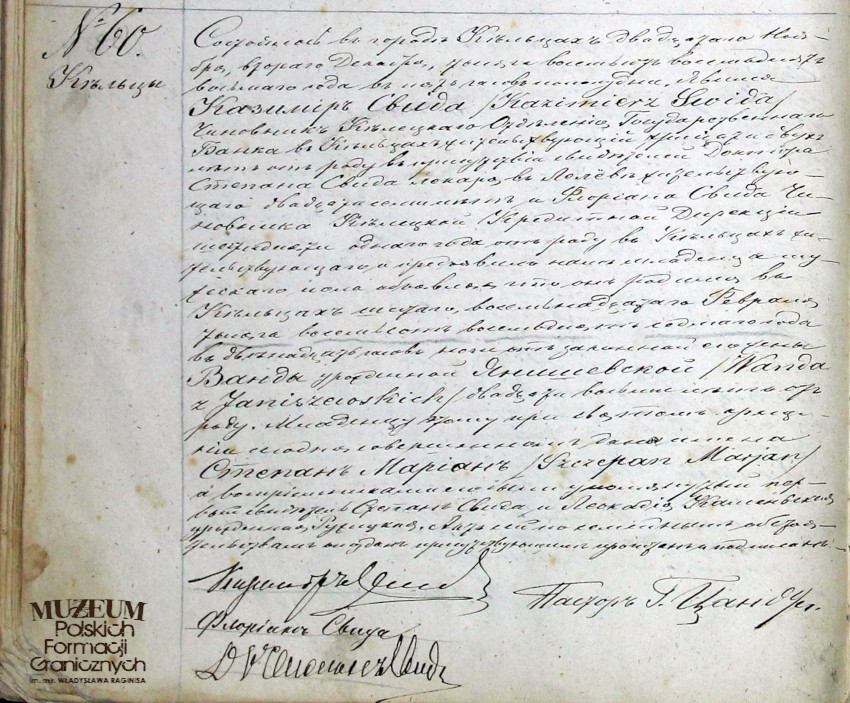 № 60.
Кѣльцы
Состоялось въ городѣ Кѣльцахъ двадцатаго Ноя-
бря, втораго Декабря, тысяча восемьсотъ восемьдесятъ
восьмаго года въ часовъ пополудни. Явился
Казимиръ Свида /Kazimierz Swida/
Чиновникъ Кѣлецкаго Отдѣленія Государственнаго
Банка въ Кѣльцахъ жительствующій тридцати двухъ
лѣтъ отъ роду въ присутствіи свидѣтелей Доктора
Степана Свида лекаря, въ жительствую-
щаго двадцати семи лѣтъ и Флоріана Свида Чи-
новника Кѣлецкой Кредитной Дирекціи
шестидесяти однаго года отъ роду въ Кѣльцахъ жи-
тельствующаго, и предъявилъ намъ младенца му-
жескаго пола объявляя, что онъ родился въ
Кѣльцахъ шестаго, восемьнадцатаго Февраля
тысяча восемьсотъ восемьдесятъ седьмаго года
въ двѣнадцать часовъ ночи отъ законной его жены
Ванды урожденной Янишевской /Wanda
z Janiszewskich/ двадцати восьми лѣтъ отъ
роду. Младенцу этому при святомъ креще-
ніи сегодня совершенномъ даны имена
Степанъ Маріанъ /Szczepan Marjan/
а воспріемниками его были упомянутый пер-
вый свидѣтель Степанъ Свида и Леокадія Каменьская
урожденная. Актъ по семейнымъ обстоя-
тельствамъ присутствующимъ прочитанъ и подписанъ.
Казимиръ Свида
Флоріанъ Свида
Dr Свида
Пасторъ Г. Цандеръ.
MUZEUM
Polskich
Formacji
Granicznych
im. mjr. WŁADYSŁAWA RAGINISA